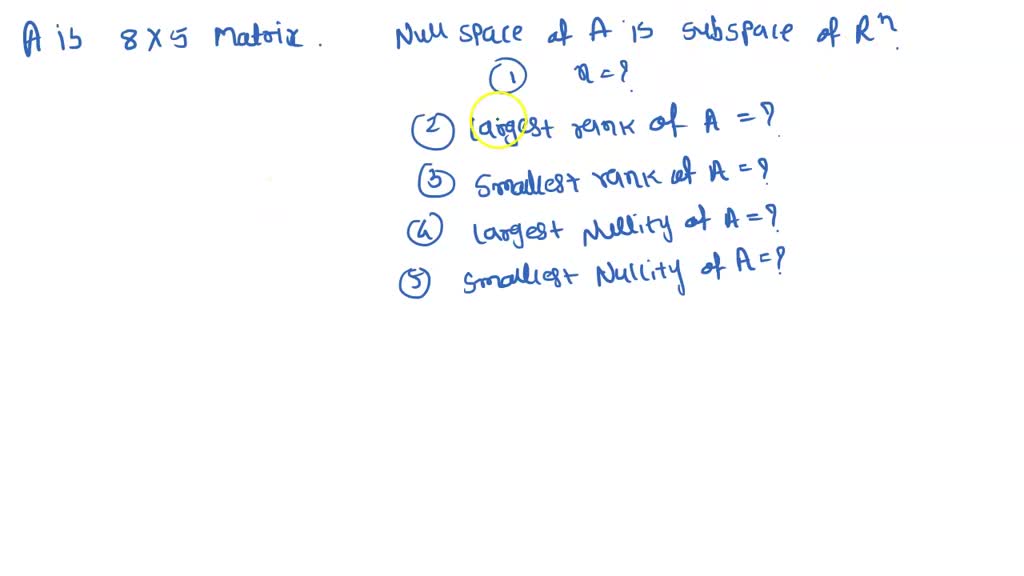 A is 8 x 5 Matrix. Null space of A is subspace of Rⁿ.
① n = ?
② Largest rank of A = ?
③ Smallest rank of A = ?
④ Largest Nullity of A = ?
⑤ Smallest Nullity of A = ?